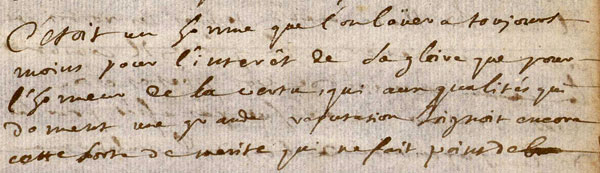 C'estoit un homme que l'on loüera toujours
moins pour l'interêt de sa gloire que pour
l'honneur de la vertu, qui aux qualités qui
donnent une grande reputation joignoit encore
cette sorte de merite qui ne fait point de